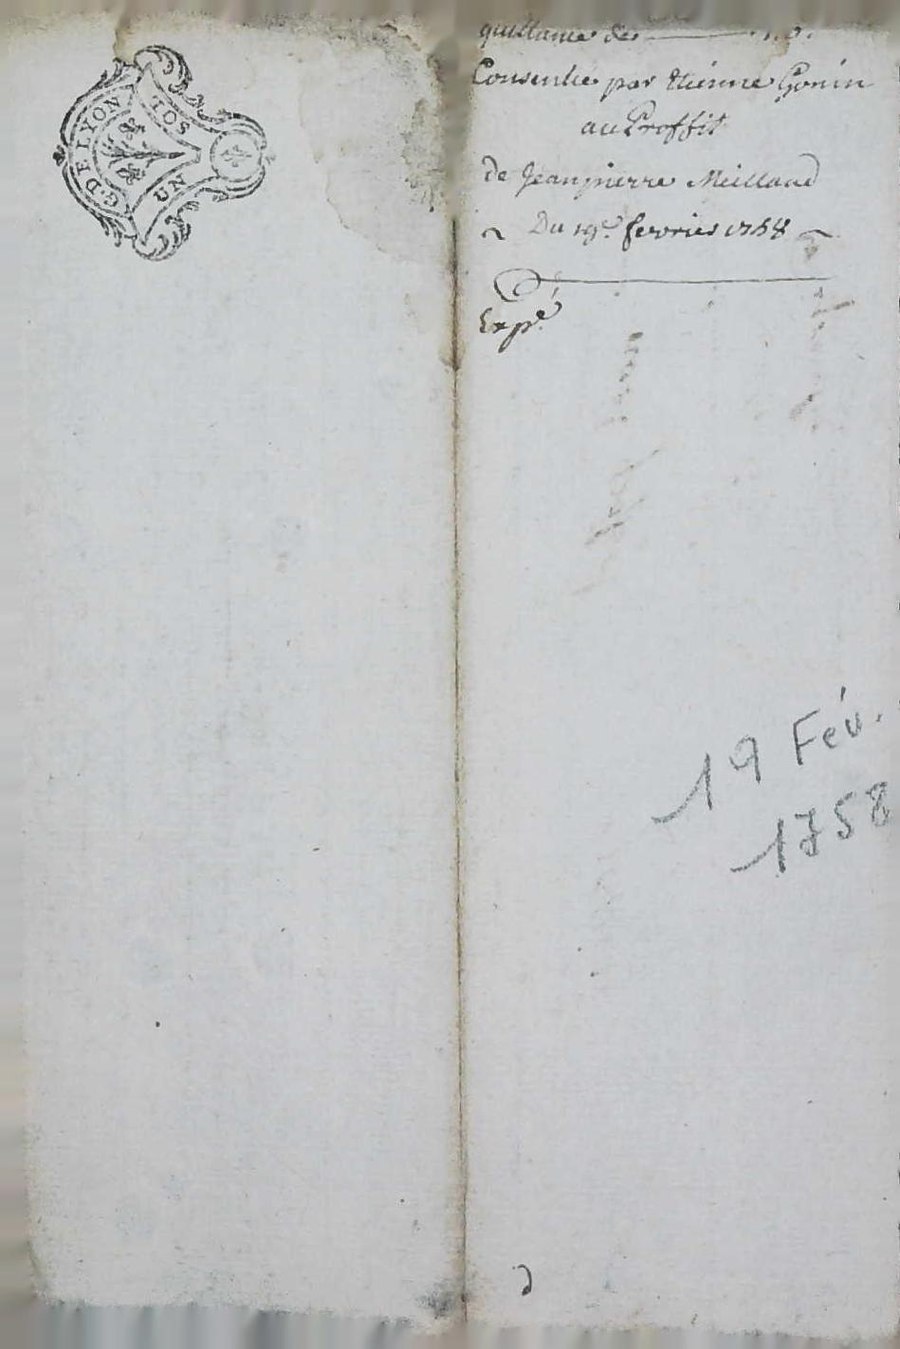 G. DE LYON
UN SOL
quittance de
Consentie par Etienne Gonin
au Proffit
de Jeanpierre Meilland
Du 19e. fevrier 1758
Expé
19 Fév.
1758